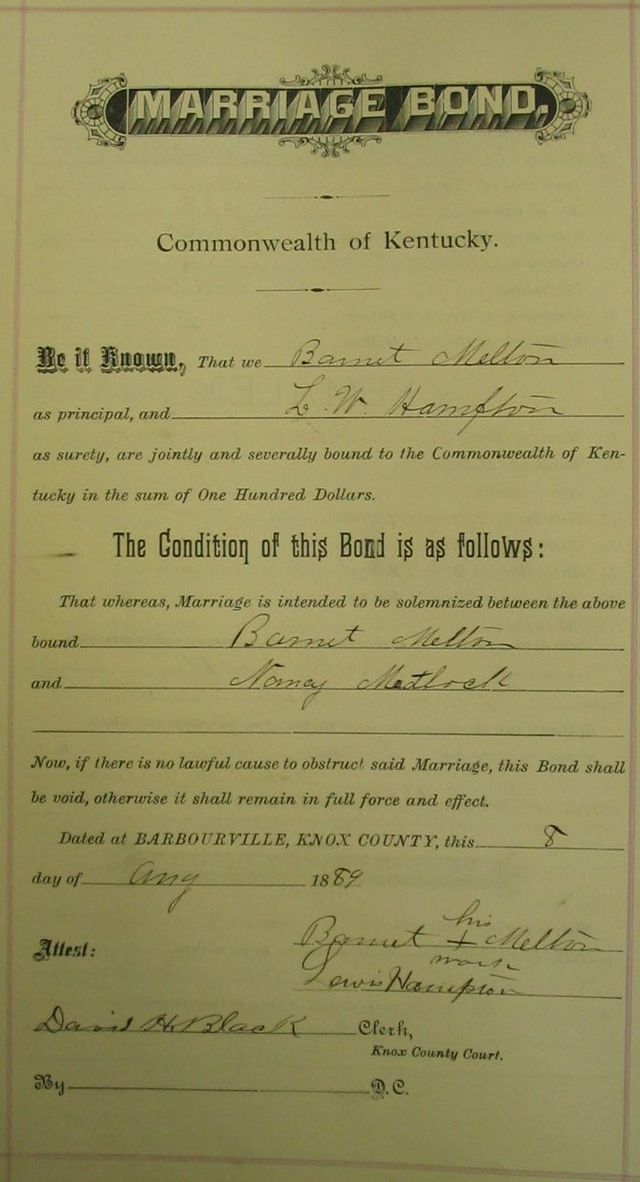 MARRIAGE BOND.
Commonwealth of Kentucky.
Be it Known, That we Barnet Melton
as principal, and L. W. Hampton
as surety, are jointly and severally bound to the Commonwealth of Ken-
tucky in the sum of One Hundred Dollars.
The Condition of this Bond is as follows:
That whereas, Marriage is intended to be solemnized between the above
bound Barnet Melton
and Nancy Matlock
Now, if there is no lawful cause to obstruct said Marriage, this Bond shall
be void, otherwise it shall remain in full force and effect.
Dated at BARBOURVILLE, KNOX COUNTY, this 8
day of Aug 1889
his
Attest: Barnet + Melton
mark
Lewis Hampton
David H. Black Clerk,
Knox County Court.
By D.C.